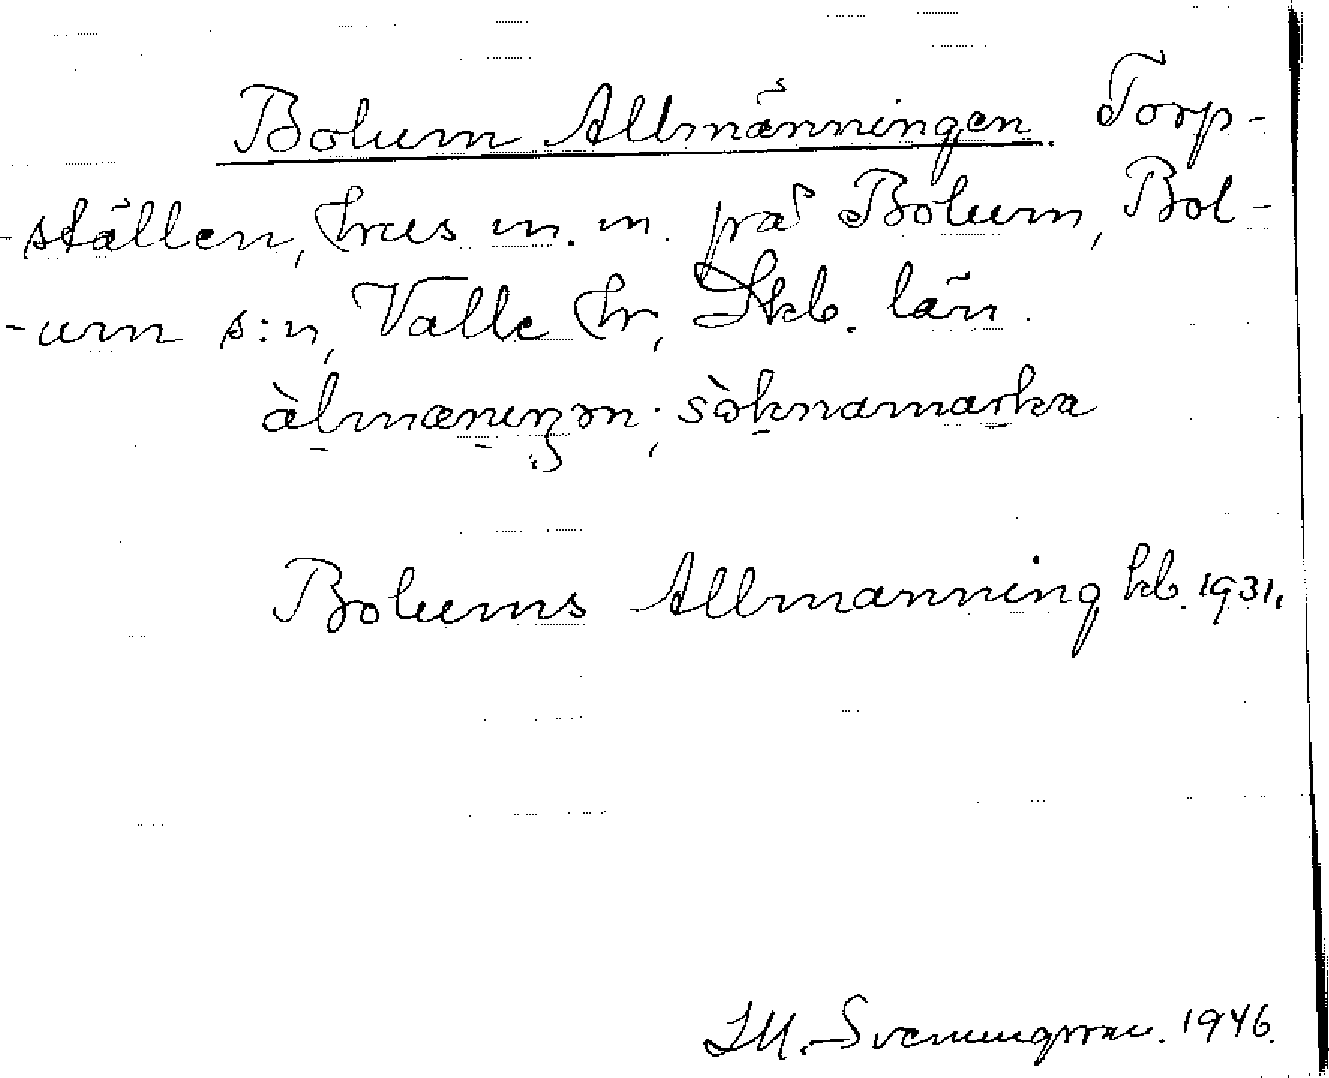 Bolum Allmänningen. Torp-
-ställen, hus m. m. på Bolum, Bol-
-um s:n, Valle hr, Skb. län.
àlmæniŋən; sòknamarka
Bolums Allmänning kb. 1931.
Svenungsson. 1946.